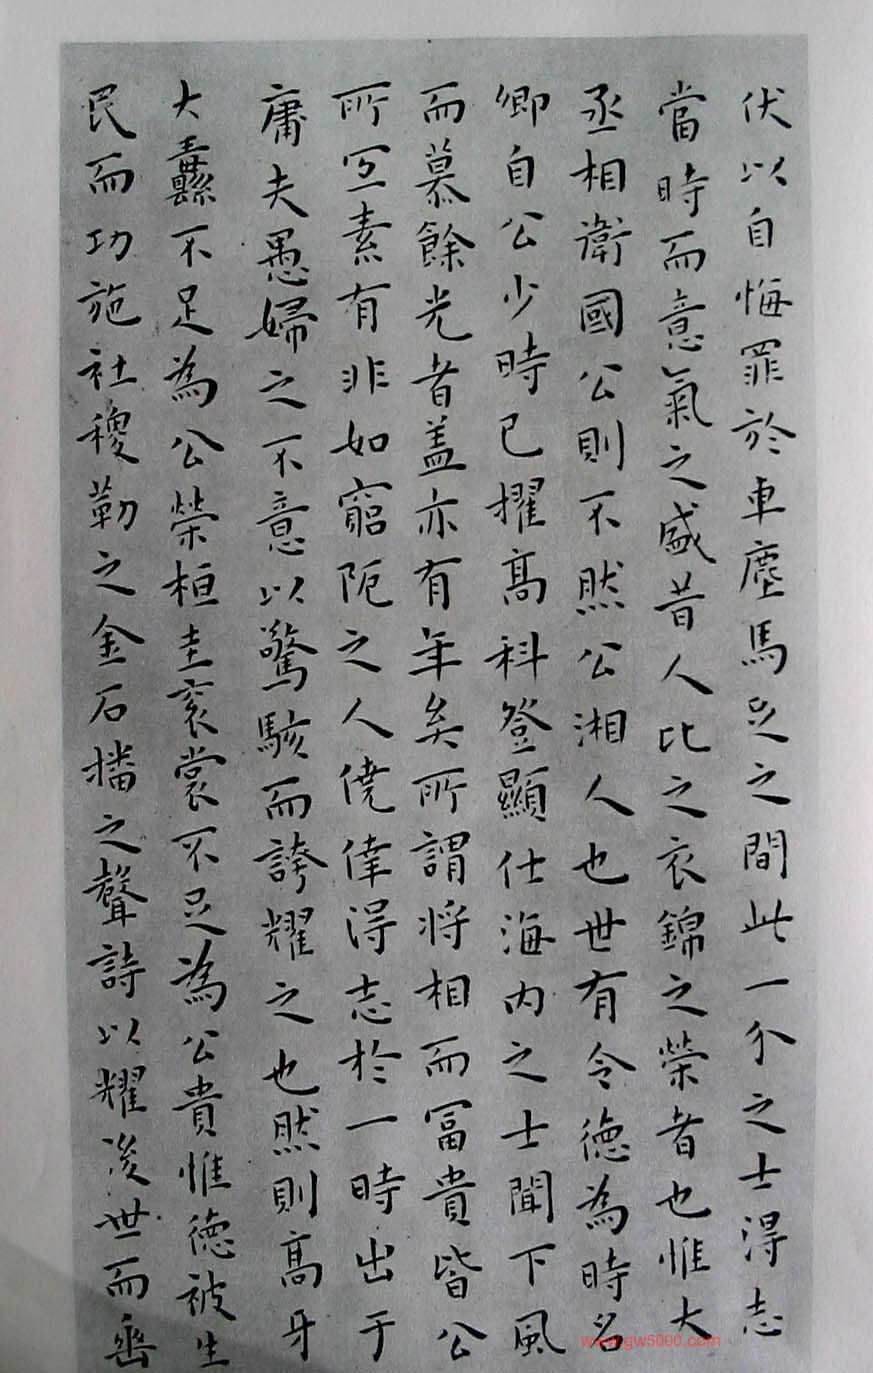 伏以自悔罪於車塵馬足之間此一介之士得志
當時而意氣之盛昔人比之衣錦之榮者也惟大
丞相衛國公則不然公湘人也世有令德為時名
卿自公少時已擢高科登顯仕海內之士聞下風
而慕餘光者盖亦有年矣所謂將相而富貴皆公
所宜素有非如窮阨之人僥倖得志於一時出于
庸夫愚婦之不意以驚駭而誇耀之也然則高牙
大纛不足為公榮桓圭袞裳不足為公貴惟德被生
民而功施社稷勒之金石播之聲詩以耀後世而垂
www.gw5000.com